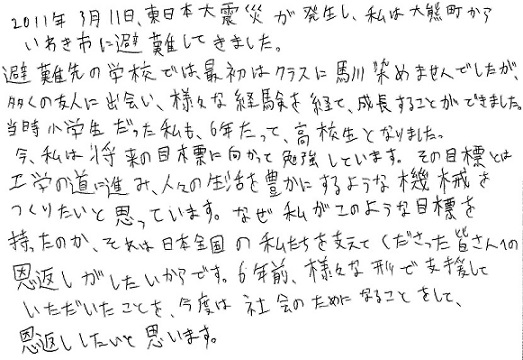 2011年3月11日、東日本大震災が発生し、私は大熊町から
いわき市に避難してきました。
避難先の学校では最初はクラスに馴染めませんでしたが、
多くの友人に出会い、様々な経験を経て、成長することができました。
当時小学生だった私も、6年たって、高校生となりました。
今、私は将来の目標に向かって勉強しています。その目標とは
工学の道に進み、人々の生活を豊かにするような機械を
つくりたいと思っています。なぜ私がこのような目標を
持ったのか、それは日本全国の私たちを支えてくださった皆さんへの
恩返しがしたいからです。6年前、様々な形で支援して
いただいたことを、今度は社会のためになることをして、
恩返ししたいと思います。